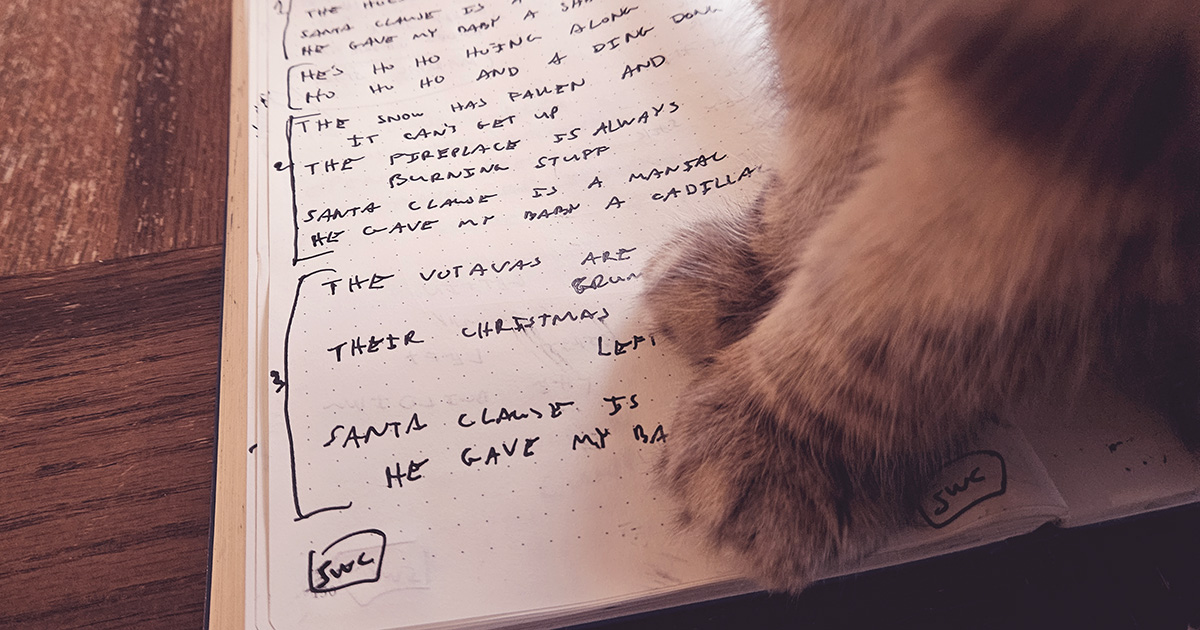 THE
SANTA CLAUSE IS A
HE GAVE MY BABY A
HE'S HO HO HOING ALONG
HO HO HO AND A DING DONG
THE SNOW HAS FALLEN AND
IT CAN'T GET UP
2
THE FIREPLACE IS ALWAYS
BURNING STUFF
SANTA CLAUSE IS A MANIAC
HE GAVE MY BABY A CADILLA
THE VOTAVAS ARE
GRUM
THEIR CHRISTMAS
LEFT
3
SANTA CLAUSE IS
HE GAVE MY BA
SWC
SWC